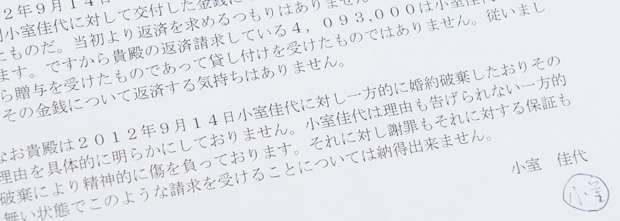 ２年９月１４日
小室佳代に対して交付した金銭に
ものだ。当初より返済を求めるつもりはありません
ます。ですから貴殿の返済請求している４，０９３，０００は小室佳代
ら贈与を受けたものであって貸し付けを受けたものではありません。従いまし
その金銭について返済する気持ちはありません。
なお貴殿は２０１２年９月１４日小室佳代に対し一方的に婚約破棄したおりその
理由を具体的に明らかにしておりません。小室佳代は理由も告げられない一方的
破棄により精神的に傷を負っております。それに対し謝罪もそれに対する保証も
無い状態でこのような請求を受けることについては納得出来ません。
小室　佳代
小室